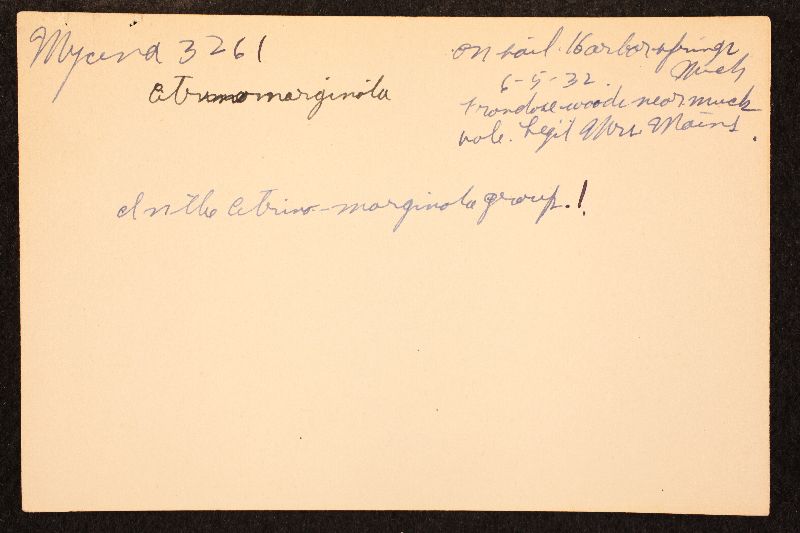 Mycena 3261
citrinomarginata
On soil. Harbor Springs
Mich
6-5-32.
Frondose woods near muck
hole. Legit Mrs. Mains.
In the Citrino-marginata group.!